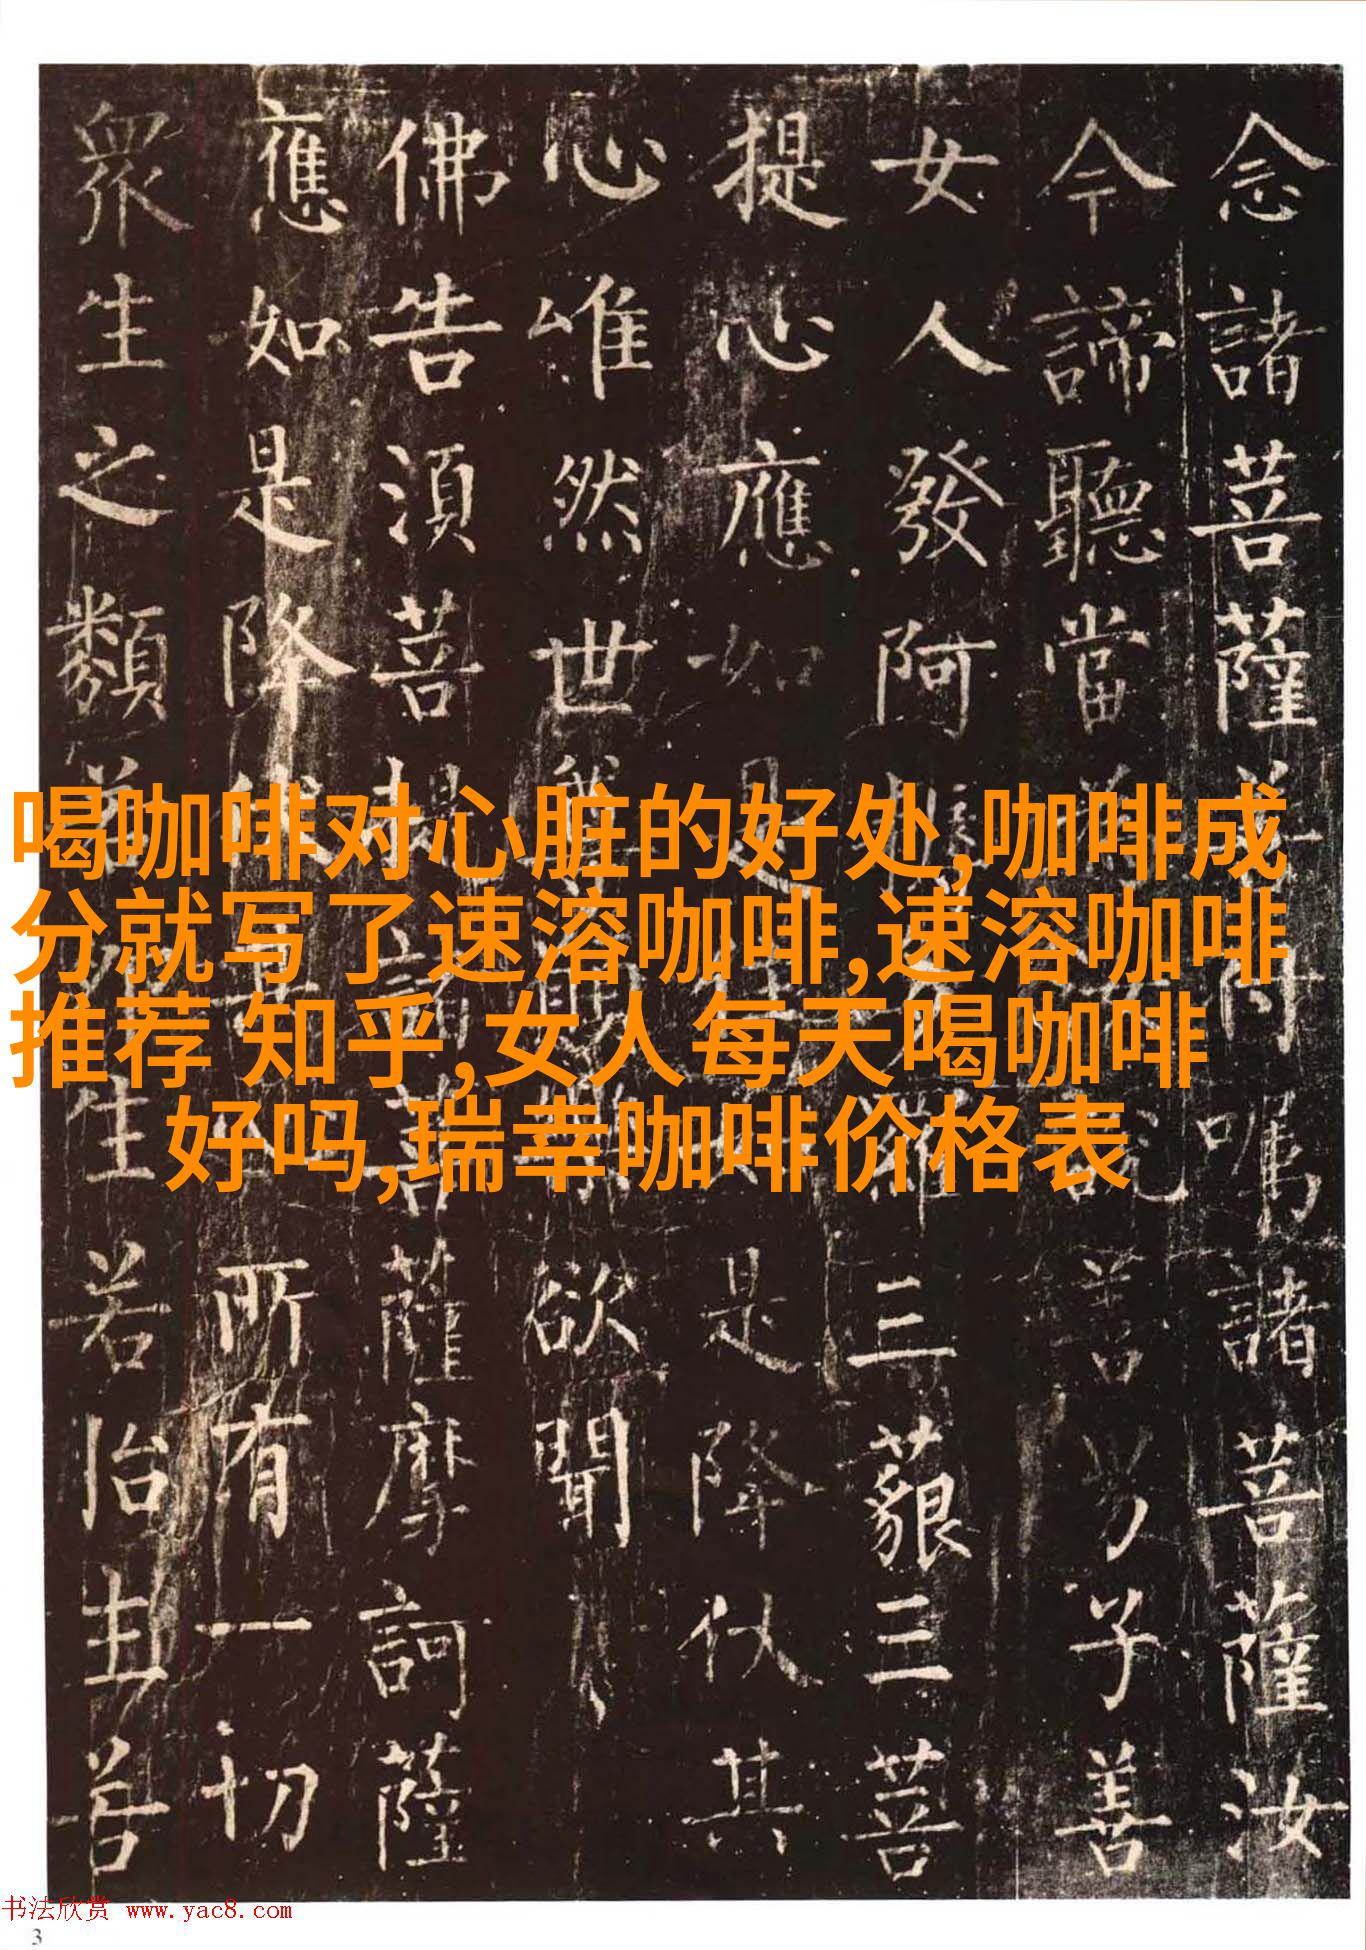 念諸菩薩付囑諸菩薩汝
今諦聽當說善男子善
女人發阿耨羅三藐三菩
提心應如是如是降伏其
心唯然世欲聞
佛告須菩提諸菩薩摩訶薩
應如是降伏其所有一切
衆生之類若生若胎生若
喝咖啡对心脏的好处,咖啡成
分就写了速溶咖啡,速溶咖啡
推荐 知乎,女人每天喝咖啡
好吗,瑞幸咖啡价格表
书法欣赏 www.yac8.com
3